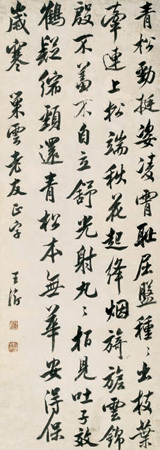 青松勁挺姿凌霄恥屈盤種〻出枝葉
牽連上松端秋花起絳烟旖旎雲錦
殷不羞不自立舒光射丸〻柏見吐子效
鶴疑縮頸還青松本無華安得保
歲寒 巢雲老友正字 王澍